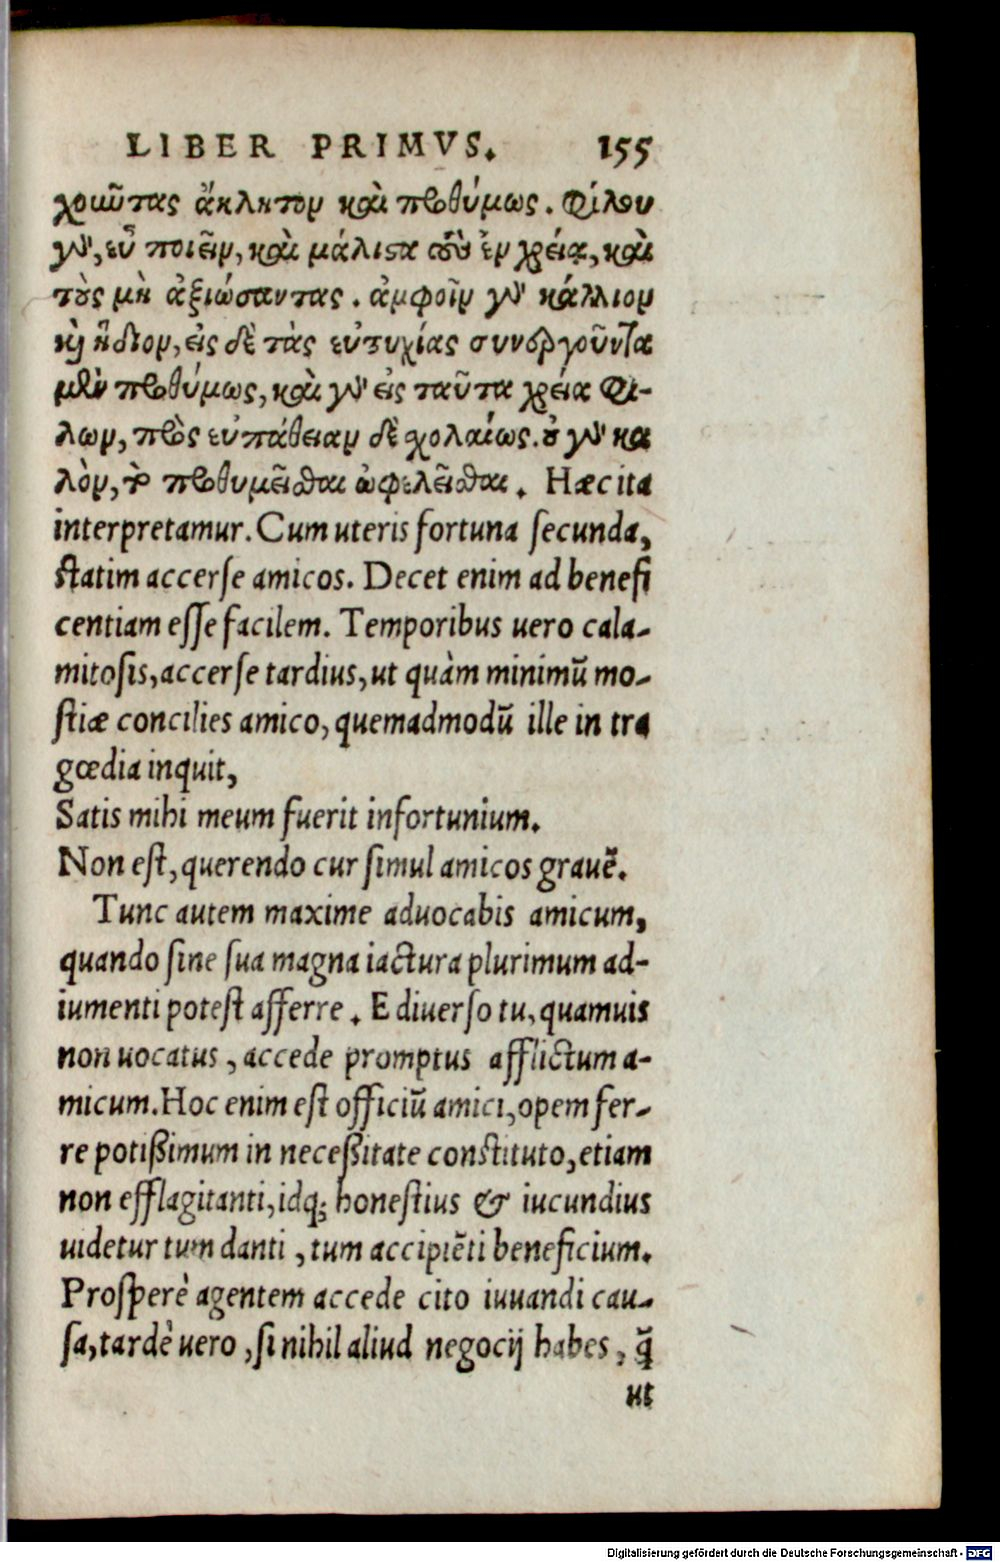 LIBER PRIMVS. 155
χοιῶτας ἄκλητον καὶ προθύμως. Φίλου
γὰρ, εὖ ποιεῖν, καὶ μάλιστα τοὺς ἐν χρείᾳ, καὶ
τοὺς μὴ ἀξιώσαντας. ἀμφοῖν γὰρ κάλλιον
καὶ ἥδιον, εἰς δὲ τὰς εὐτυχίας συνεργοῦντα
μὲν προθύμως, καὶ γὰρ εἰς ταῦτα χρεία Φί-
λων, πρὸς εὐπάθειαν δὲ χολαίως. οὐ γὰρ κα
λὸν, τὸ προθυμεῖσθαι ὠφελεῖσθαι. Hæc ita
interpretamur. Cum uteris fortuna ſecunda,
ſtatim accerſe amicos. Decet enim ad benefi
centiam eſſe facilem. Temporibus uero cala-
mitoſis, accerſe tardius, ut quàm minimũ mo-
ſtiæ concilies amico, quemadmodũ ille in tra
gœdia inquit,
Satis mihi meum fuerit infortunium.
Non eſt, querendo cur ſimul amicos grauẽ.
Tunc autem maxime aduocabis amicum,
quando ſine ſua magna iactura plurimum ad-
iumenti poteſt afferre. E diuerſo tu, quamuis
non uocatus, accede promptus afflictum a-
micum. Hoc enim eſt officiũ amici, opem fer-
re potißimum in neceßitate conſtituto, etiam
non efflagitanti, idq; honeſtius & iucundius
uidetur tum danti, tum accipiẽti beneficium.
Proſperè agentem accede cito iuuandi cau-
ſa, tardè uero, ſi nihil aliud negocij habes, q̃
ut
Digitalisierung gefördert durch die Deutsche Forschungsgemeinschaft - DFG